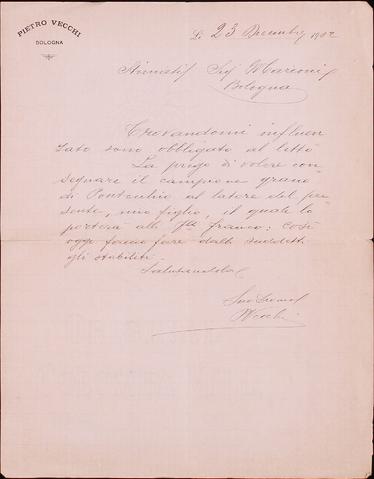 PIETRO VECCHI
BOLOGNA
Li 23 Dicembre 1902
Sig Marconi
Bologna
Trovandomi influen
zato sono obbligato al letto
La prego di volere con
segnare il campione grano
di Pontecchio al latore del pre
sente, mio figlio, il quale lo
porterà alla franco: così
oggi fare dalla
gli stabiliti
Salutandola
Vecchi